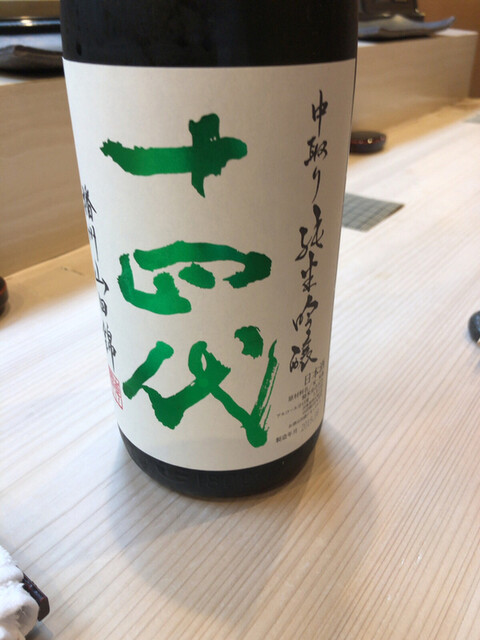 中取り純米吟醸
十四代
播州山田錦
日本酒
製造年月